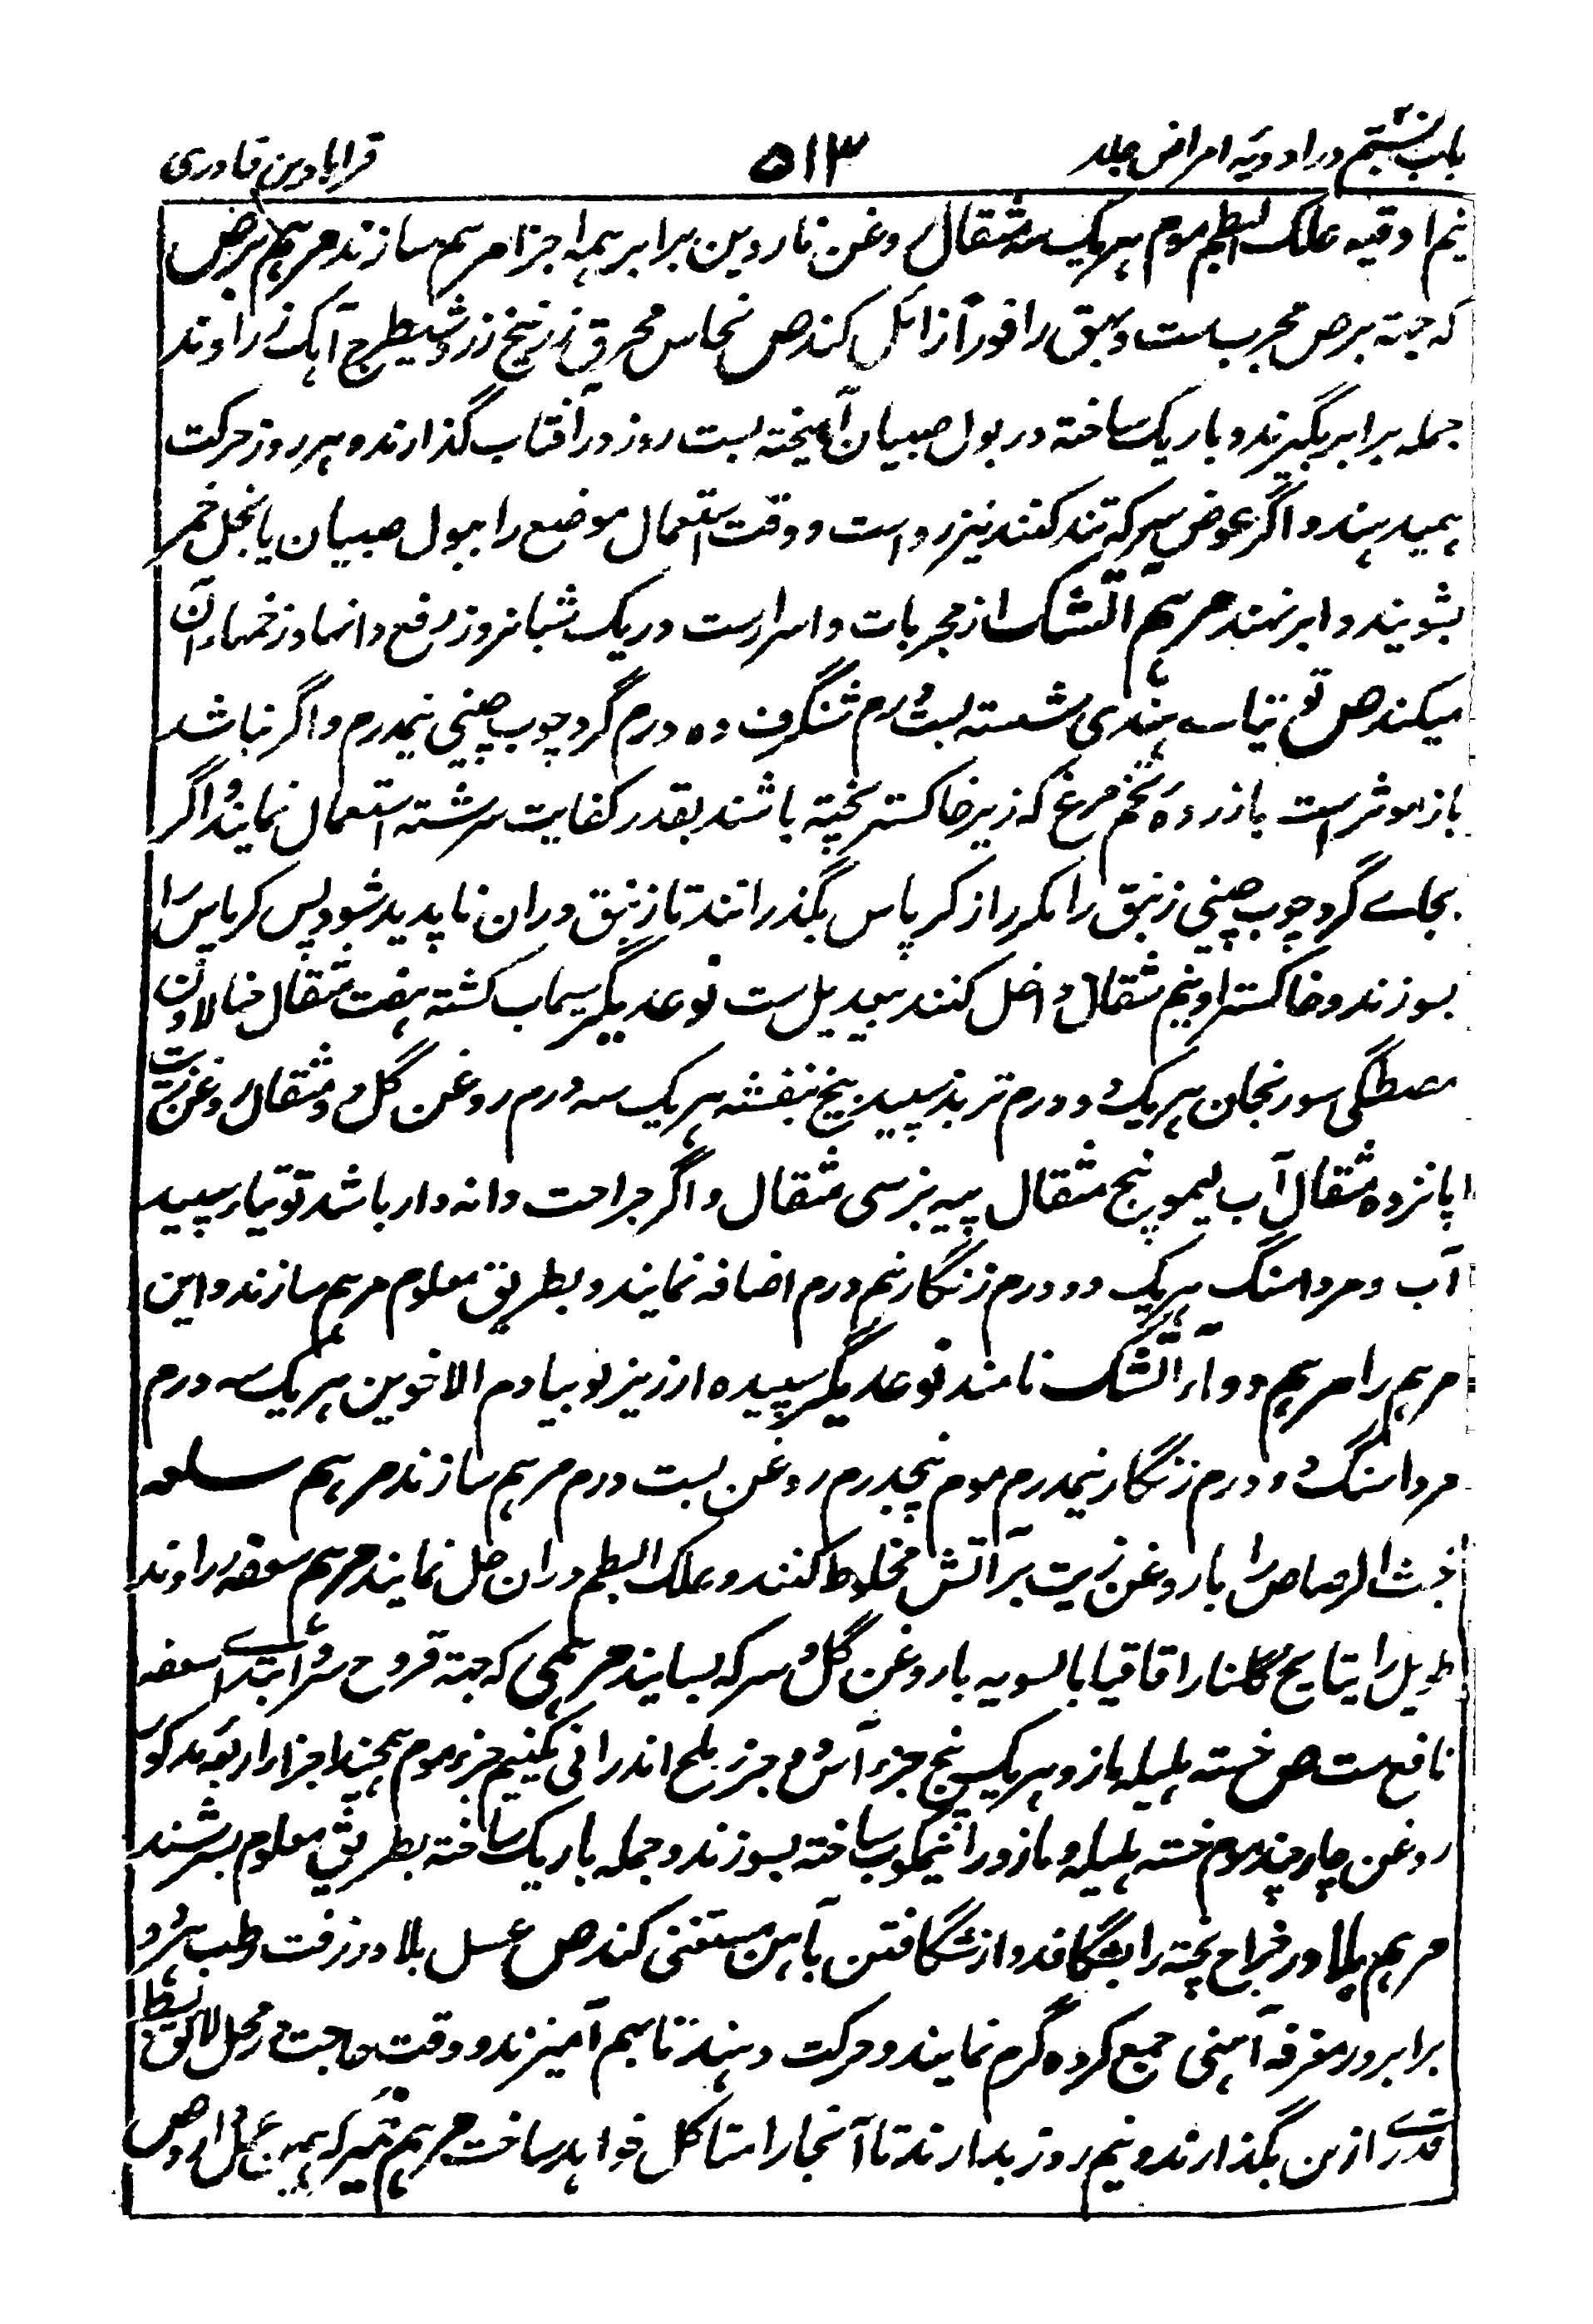 باب بستم در ادویه امراض جلد ۵۱۳ قرابادین قادری
نیم اوقیه علک البطم موم هریک سه مثقال روغن ناردین برابر همه اجزا مرهم سازند مرهم برص
که جهته برص مجرب ست و بهق را فوراً زائل کند ص نحاس محرق زرنیخ زرد شیطرج آهک زراوند
جمله برابر بگیرند و باریک ساخته در بول صبیان آمیخته بست روز در آفتاب گذارند و هر روز حرکت
همیدهند و اگر عوض سرکه تند کنند نیز رواست و وقت استعمال موضع را ببول صبیان یا بخل خمر
بشویند و ابر نهند مرهم آتشک از مجربات و اسرارست در یک شبانروز رفع دانها و زخمهاء آن
میکند ص توتیاے هندی شسته بست درم شنگرف ده درم گرد چوب چینی نیمدرم و اگر نباشد
باز موثر است با زرده تخم مرغ که زیر خاکستر پخته باشند بقدر کفایت سرشته استعمال نمایند و اگر
بجاے گرد چوب چینی زیبق را مکرر از کرپاس بگذرانند تا زیبق دران ناپدید شود پس کرپاس را
بسوزند و خاکستر او نیم مثقال داخل کنند بیعدیل ست نوعدیگر سیماب کشته هفت مثقال حنا لادن
مصطگی سورنجان هریک دو درم تربذ سپید بیخ بنفشه هریک سه درم روغن گل دو مثقال روغن زیت
پانزده مثقال آب لیمو پنج مثقال پیه بز سی مثقال و اگر جراحت دانه دار باشد توتیا سپید
آب و مرداسنگ هریک دو درم زنگار نیم درم اضافه نمایند و بطریق معلوم مرهم سازند و این
مرهم را مرهم دواء آتشک نامند نوعدیگر سپیده ارزیز توبیا دم الاخوین هریک سه درم
مرداسنگ دو درم زنگار نیمدرم موم پنجدرم روغن بست درم مرهم سازند مرهم سلعه
خبث الرصاص را با روغن زیت بر آتش مخلوط کنند و علک البطم دران حل نمایند مرهم سعفه زراوند
طویل راتیانج گلنار اقاقیا بالسویه با روغن گل و سرکه بسایند مرهمی که جهته قروح سر و ابتداے سعفه
نافع ست ص خسته هلیله مازو هریک پنج جزء آس دو جزء ملح اندرانی یکنیم جزء موم همچند اجزا اربعه مذکور
روغن چار چند موم خسته هلیله و مازو را نیمکوب ساخته بسوزند و جمله باریک ساخته بطریق معلوم بسرشند
مرهم بلادر خراج پخته را بشگافد و از شگافتن بآهن مستغنی کند ص عسل بلادر زفت رطب هر دو
برابر در مغرفه آهنی جمع کرده گرم نمایند و حرکت دهند تا بهم آمیزند و وقت حاجت در محل لائق بسط
قدرے ازین بگذارند و نیم روز بدارند تا آنجا را متاکل خواهد ساخت مرهم